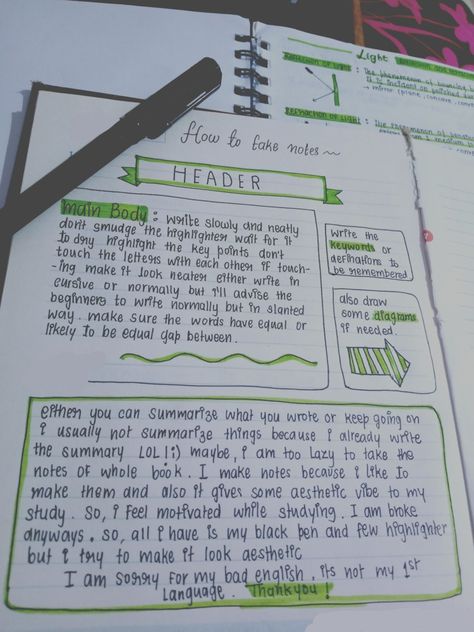 Light
Reflection of light : the phenomenon of bouncing
it is incident on polished
→ mirror (plane, concave, conv
Refraction of light : the phenomenon of
How to take notes~
HEADER
main Body : write slowly and neatly
don't smudge the highlighters wait for it
to dry highlight the key points don't
touch the letters with each other if touch-
-ing make it look neater either write in
cursive or normally but i'll advise the
beginners to write normally but in slanted
way. make sure the words have equal or
likely to be equal gap between.
write the
keywords or
definations to
be remembered
also draw
some diagrams
if needed.
either you can summarize what you wrote or keep going on
i usually not summarize things because i already write
the summary LOL !;) maybe, i am too lazy to take the
notes of whole book. I make notes because i like to
make them and also it gives some aesthetic vibe to my
study. so, i feel motivated while studying. I am broke
anyways. so, all i have is my black pen and few highlighter
but i try to make it look aesthetic
I am sorry for my bad english. its not my 1st
Language. Thankyou !